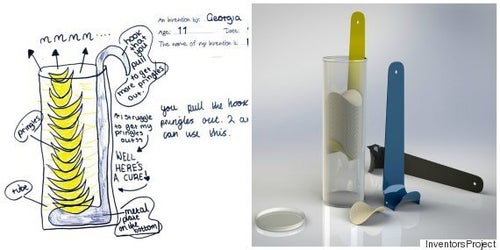 An invention by: Georgia
Age: 11
Date:
The name of my invention is
mmmm....
hook that
you
pull
to get
more
pringles
out!
you pull the hook
pringles out. 2 a
can use this.
*I struggle
to get my
pringles
out ??
WELL
HERE'S
A CURE!
pringles
tube
metal
plate
on the
bottom
InventorsProject